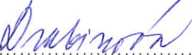 Drabinová